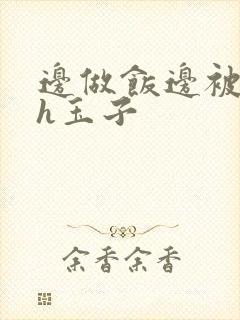 邊做飯邊被
h玉子
余香余香